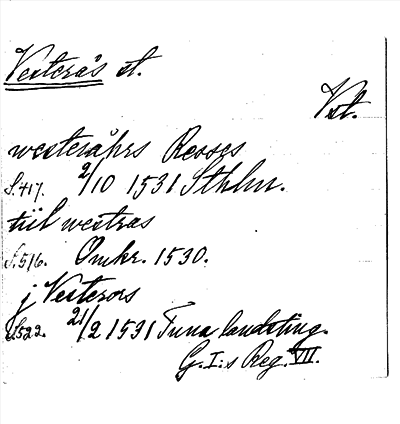 Vesterås st.
Vst.
westeråhrs Resses
S. 417. 2/10 1531 Sthlm.
tiil westras
S. 516. Omkr. 1530.
j Vesterors
S. 522. 21/2 1531 Tuna landsting.
G. I:s Reg. VII.